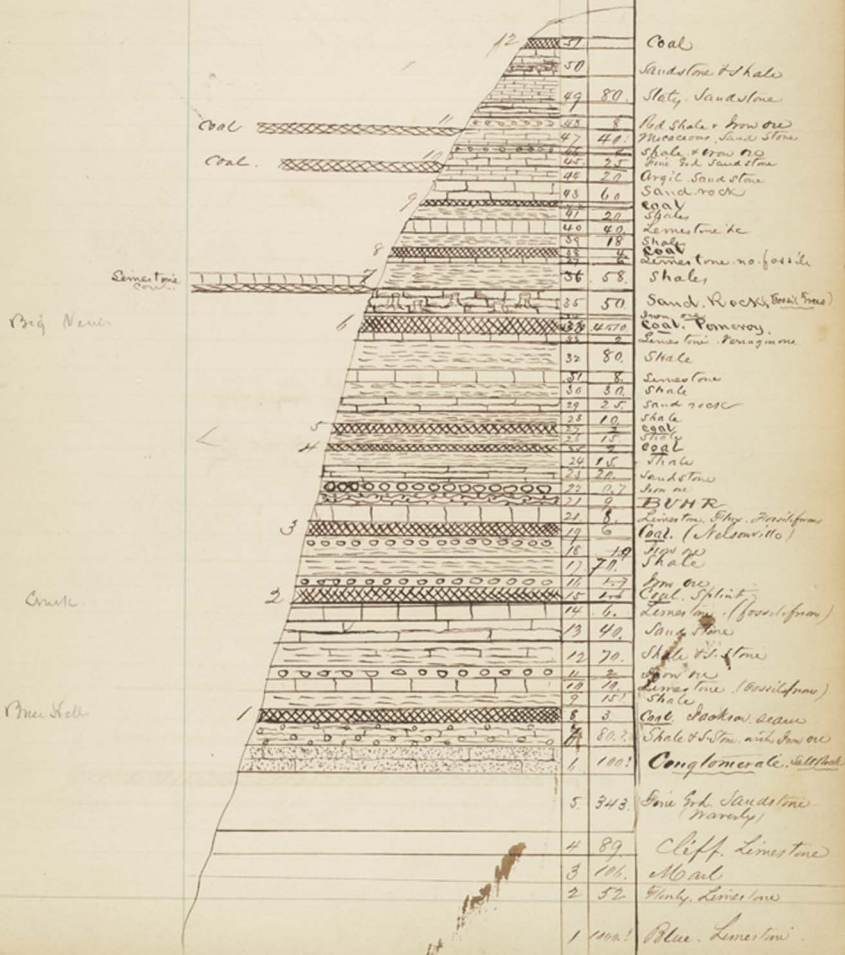 12 51 Coal
50 Sandstone & Shale
49 80. Slaty. Sandstone
Coal 11 48 8 Red Shale & Iron ore
47 40. Micaceous. Sand Stone
Shale & Iron ore
Coal. 10 45. 25 Fine Grd Sandstone
44 20 Argil. Sandstone
43 60 Sand rock
9 Coal
41 20 Shales
40 40. Limestone &c
39 18 Shale
8 38 4 Coal
Limestone no fossils
Limestone 7 36 58. Shales
Coal
35 50 Sand. Rock, (Fossil Trees)
Iron ore
6 Coal. Pomeroy.
33 2 Limestone. Ferruginous
32 80. Shale
31 8. Limestone
30 30. Shale
29 25. Sand rock
28 10. Shale
5 27 Coal
26 15. Shale
4 25 2 Coal
24 15. Shale
23 20. Sandstone
22 0.7 Iron ore
21 9 BUHR
20 8. Limestone
3 19 6 Coal. (Nelsonville)
18 Iron ore
17 70. Shale
16 Iron ore
2 15 Coal. Splint
14 6. Limestone. (fossiliferous)
13 40. Sand Stone
12 70. Shale & S. Stone
11 2 Iron ore
10 10. Limestone (fossiliferous)
9 15? Shale
1 8 3 Coal. Jackson seam
80.? Shale & S. Stone with Iron ore
6 100? Conglomerate.
5. 343. Fine Grd. Sandstone
(Waverly)
4 89. Cliff. Limestone
3 106. Marl
2 52 Flinty. Limestone
1 1000? Blue. Limestone